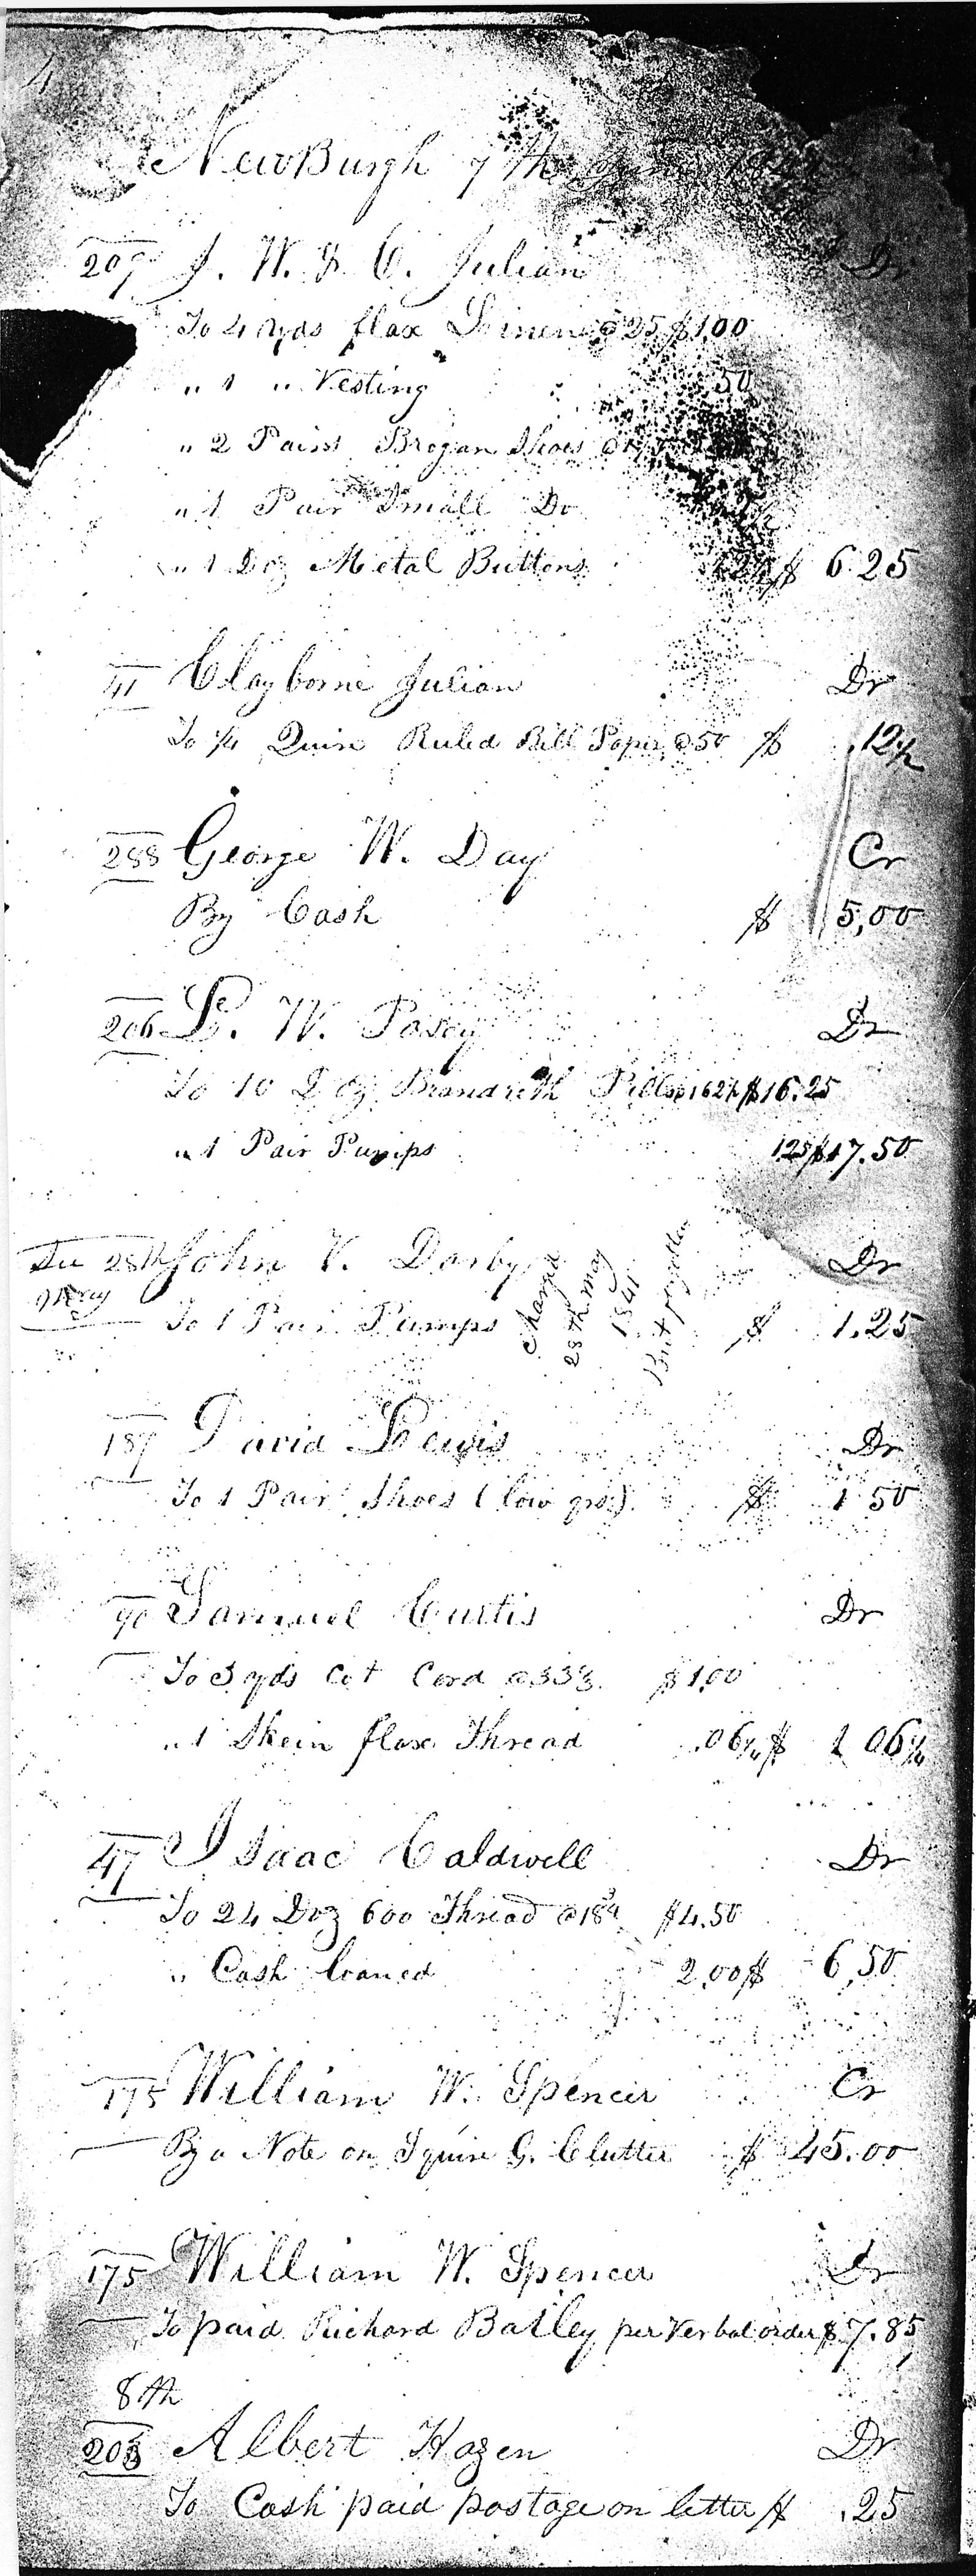 4
NewBurgh 7th June
207 J. W. & C. Julian Dr
To 4 yds flax Linen @ 25 $1,00
" 1 " Vesting 50
" 2 Pairs Brogan Shoes @
" 1 Pair Small Do
" 1 Doz Metal Buttons 12½ $ 6 25
41 Clayborne Julian Dr
To ¼ Quire Ruled Bill Paper @ 50 $ .12½
288 George W. Day Cr
By Cash $ 5,00
206 L. W. Posey Dr
To 10 Doz Brandreth Pills @ 162½ $16.25
" 1 Pair Pumps 125 $17.50
See 28th John V. Darby Dr
May
To 1 Pair Pumps $ 1.25
Charged
28th May
1841
But forgotten
187 David Lewis Dr
To 1 Pair Shoes (low ) $ 1 50
90 Samuel Curtis Dr
To 3 yds Cot Cord @ 33⅓ $1,00
" 1 Skein flax Thread .06¼ $ 1 06¼
47 Isaac Caldwell Dr
To 24 Doz 600 Thread @ 18¾ $4.50
" Cash loaned 2,00 $ 6,50
175 William W. Spencer Cr
By a Note on Squire G. Clutter $ 45.00
175 William W. Spencer Dr
To paid Richard Bailey per Verbal order $ 7.85
8th
203 Albert Hazen Dr
To Cash paid postage on letter $ .25